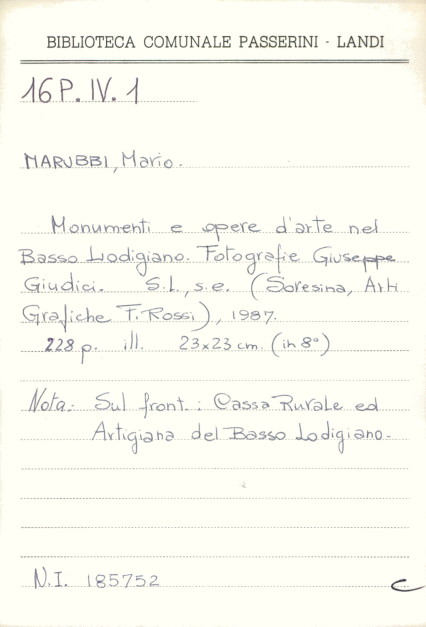 BIBLIOTECA COMUNALE PASSERINI - LANDI
16 P. IV. 1
MARUBBI, Mario.
Monumenti e opere d'arte nel
Basso Lodigiano. Fotografie Giuseppe
Giudici. S.l., s.e. (Soresina, Arti
Grafiche F. Rossi), 1987.
228 p. ill. 23x23 cm. (in 8°)
Nota: Sul front.: Cassa Rurale ed
Artigiana del Basso Lodigiano.
N.I. 185752
C